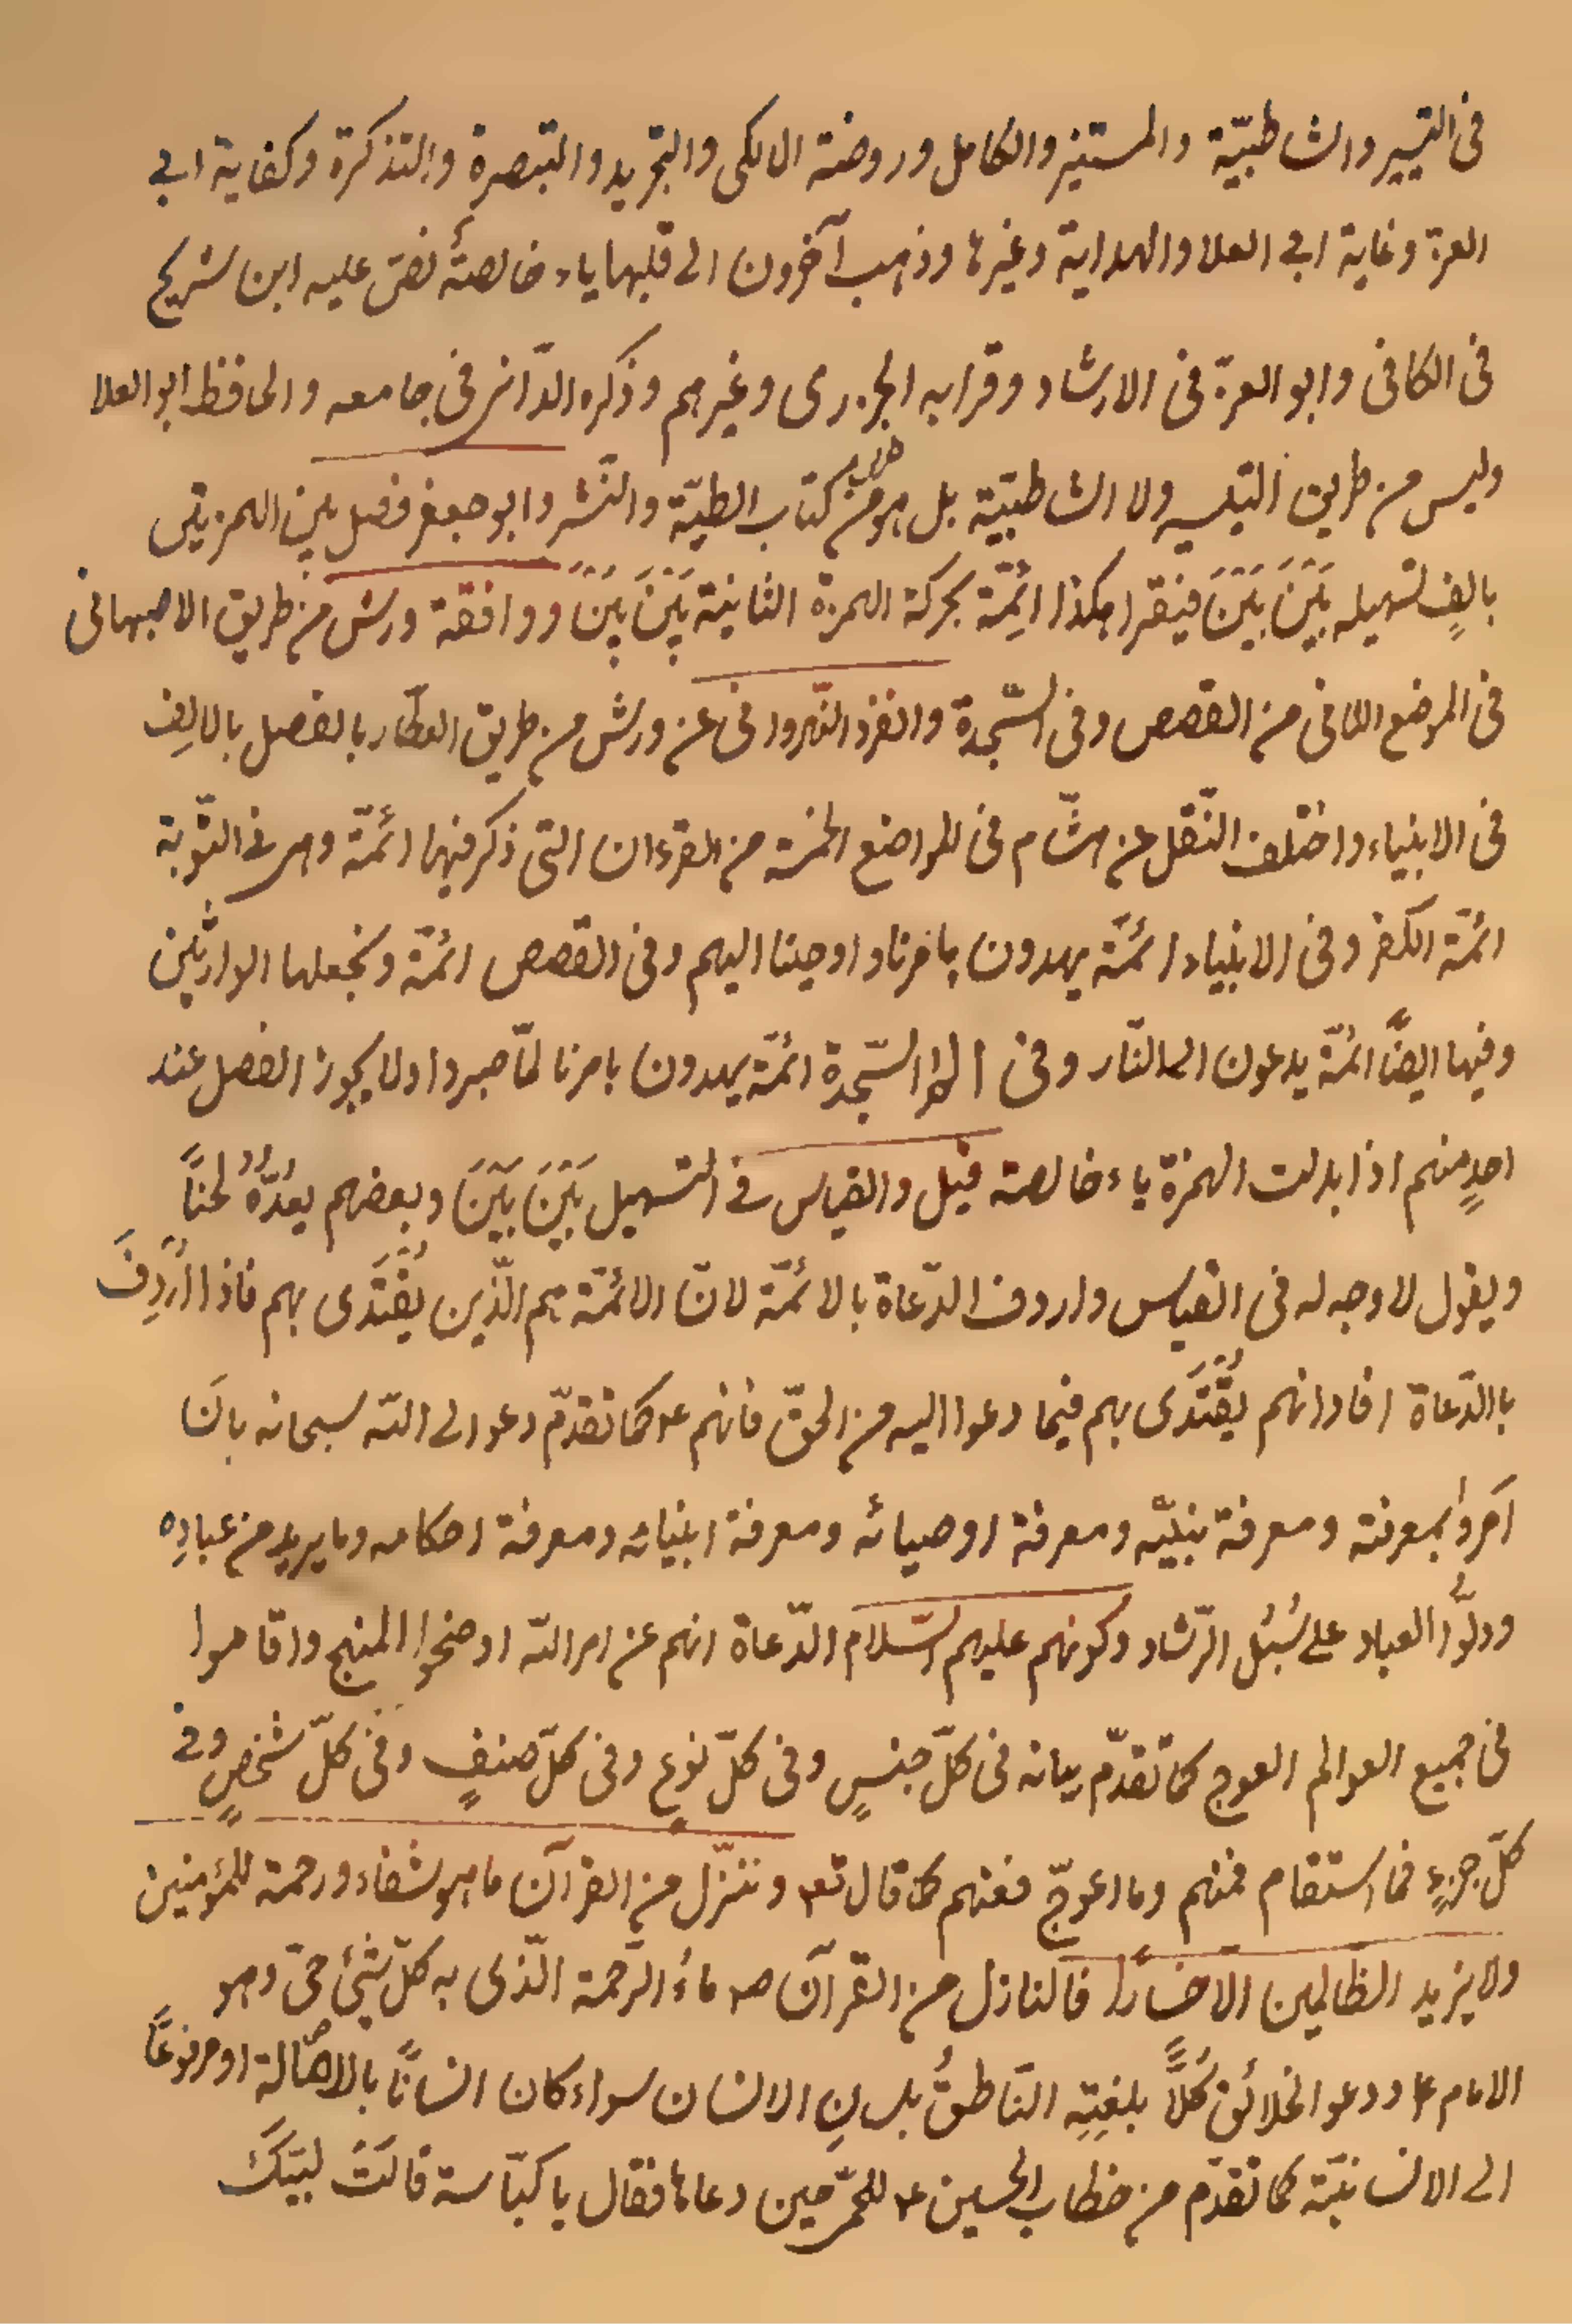 فى التيسير والشاطبيّة والمستنير والكامل وروضة المالكى والتجريد والتبصرة والتذكرة وكفاية ابى
العزّ وغاية ابى العلا والهداية وغيرها وذهب آخرون الى قلبها ياء خالصةً نصّ عليه ابن شريح
فى الكافى وابو العزّ فى الارشاد وقرا به الجزرى وغيرهم وذكره الدّانى فى جامعه والحافظ ابو العلا
وليس من طريق التيسير ولا الشاطبيّة بل هو من طريق كتاب الطيّبة والنّشر وابو جعفر فصل بين الهمزتين
بالفٍ لتسهيله بَيْنَ بَيْنَ فيقرا هكذا ائِمّة بحركة الهمزة الثانية بَيْنَ بَيْنَ ووافقه ورش من طريق الاصبهانى
فى الموضع الثانى من القصص وفى السّجدة وانفرد النّهروانى عن ورش من طريق العطّار بالفصل بالالِف
فى الانبياء واختلف النّقل عن هشّام فى المواضع الخمسة من القرءان التى ذكر فيها ائمّة وهى فى التّوبة
ائمّة الكفر وفى الانبياء ائمّة يهدون بامرنا واوحينا اليهم وفى القصص ائمّة ونجعلهم الوارثين
وفيها ايضًا ائمّة يدعون الى النّار وفى الم السّجدة ائمّة يهدون بامرنا لمّا صبروا ولا يجوز الفصل عند
احدٍ منهم اذا ابدلت الهمزة ياء خالصة قيل والقياس فى التسهيل بَيْنَ بَيْنَ وبعضهم يعُدّهُ لحنًا
ويقول لا وجه له فى القياس واردف الدّعاة بالائمّة لانّ الائمّة هم الّذين يُقْتَدَى بهم فاذا اُرْدِفَ
بالدّعاة افاد انهم يُقْتَدَى بهم فيما دعوا اليه من الحقّ فانهم ع كما تقدّم دعوا الى اللّه سبحانه بانَ
اَمَروا بمعرفته ومعرفة نبيّه ومعرفة اوصيائه ومعرفة انبيائه ومعرفة احكامه وما يريد من عبادِه
ودلُّوا العباد على سُبُل الرّشاد وكونهم عليهم السّلام الدّعاة انهم عن امر اللّه اوضحوا المنهج واقاموا
فى جميع العوالم العوج كما تقدّم بيانه فى كلّ جنسٍ وفى كلّ نوعٍ وفى كلّ صنفٍ وفى كلّ شخصٍ وفى
كلّ جزءٍ فما استقام فمنهم وما اعوجّ فعنهم كما قال تع وننزّل من القرآن ما هو شفاء ورحمة للمؤمنين
ولا يزيد الظالمين الا خسارًا فالنازل من القرآن هو ماءُ الرّحمة الّذى به كلّ شئ حىّ وهو
الامام ع ودعو الخلائق كُلاًّ بلغتِهِ النّاطقُ بلسانِ الانسان سواء كان انسانًا بالاصَالة او مرفوعًا
الى الانسانيّة كما تقدّم من خطاب الحسين ع للحُمّى حين دعاها فقال يا كبّاسة قالَتْ لبيّكَ